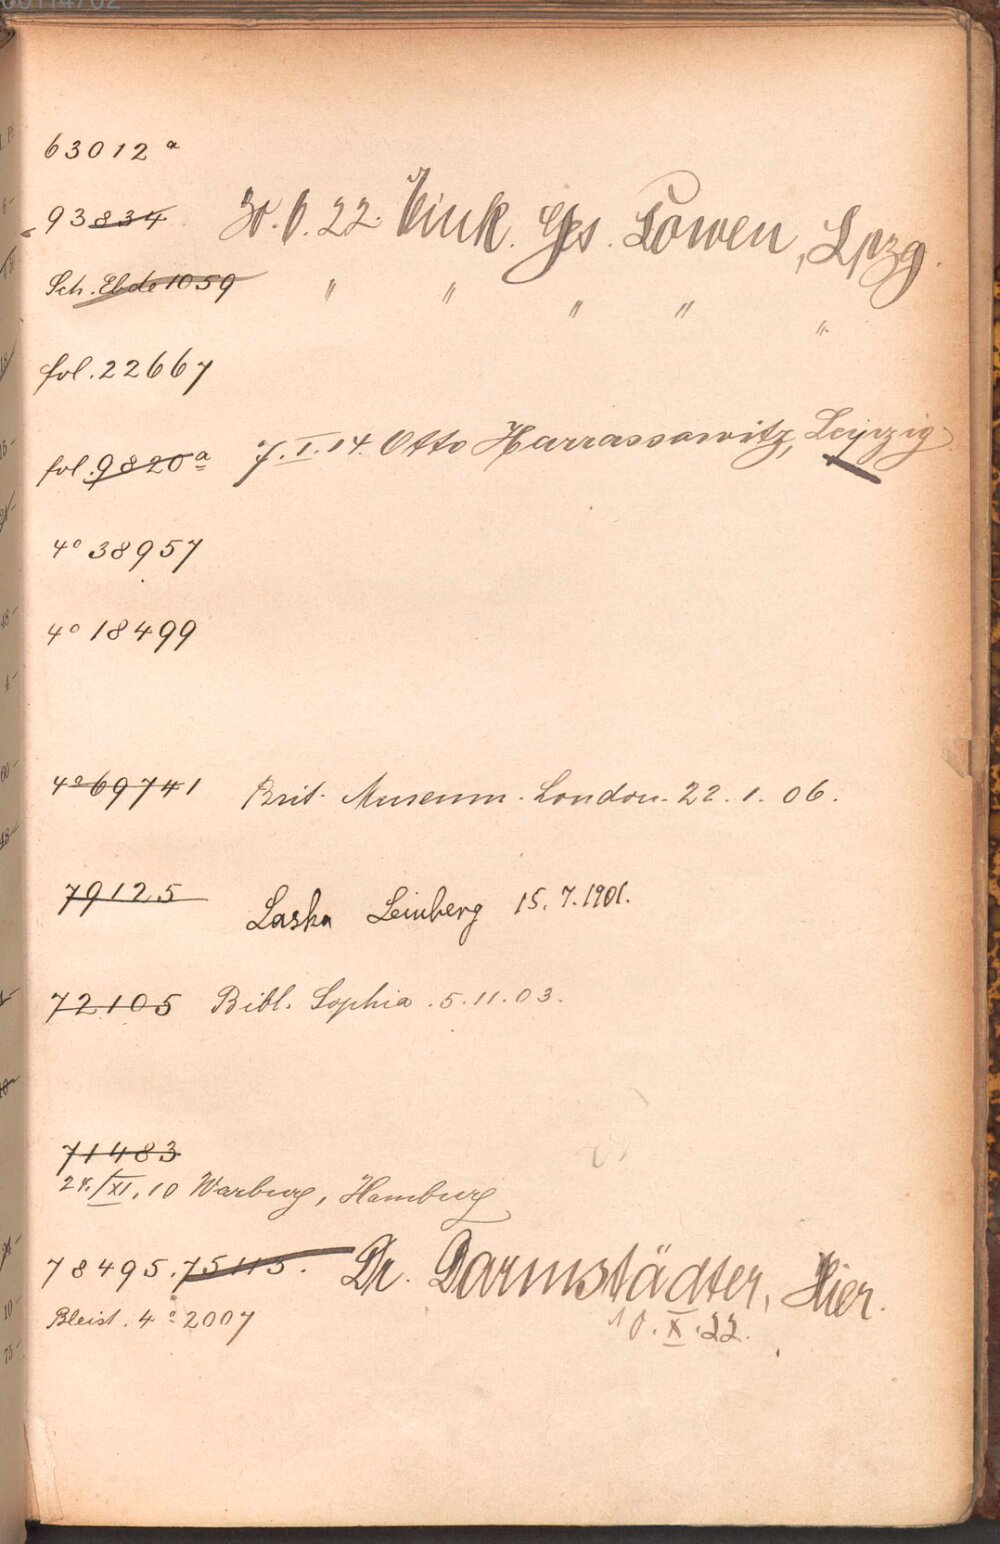 63012 a
93834 30.6.22. Eink. Ges. Löwen, Lpzg.
Sch. Ebdo 1059 " " " " "
fol. 22667
fol. 9820 a 7.I.14. Otto Harrassowitz, Leipzig
4° 38957
4° 18499
4° 69741 Brit. Museum. London. 22.1.06.
79125 Laska Leinberg 15.7.1901.
72105 Bibl. Sophia. 5.11.03.
71483
24./XI.10 Warburg, Hamburg
78495. 75115. Dr. Darmstädter, Hier.
Bleist. 4° 2007 10.X.22.